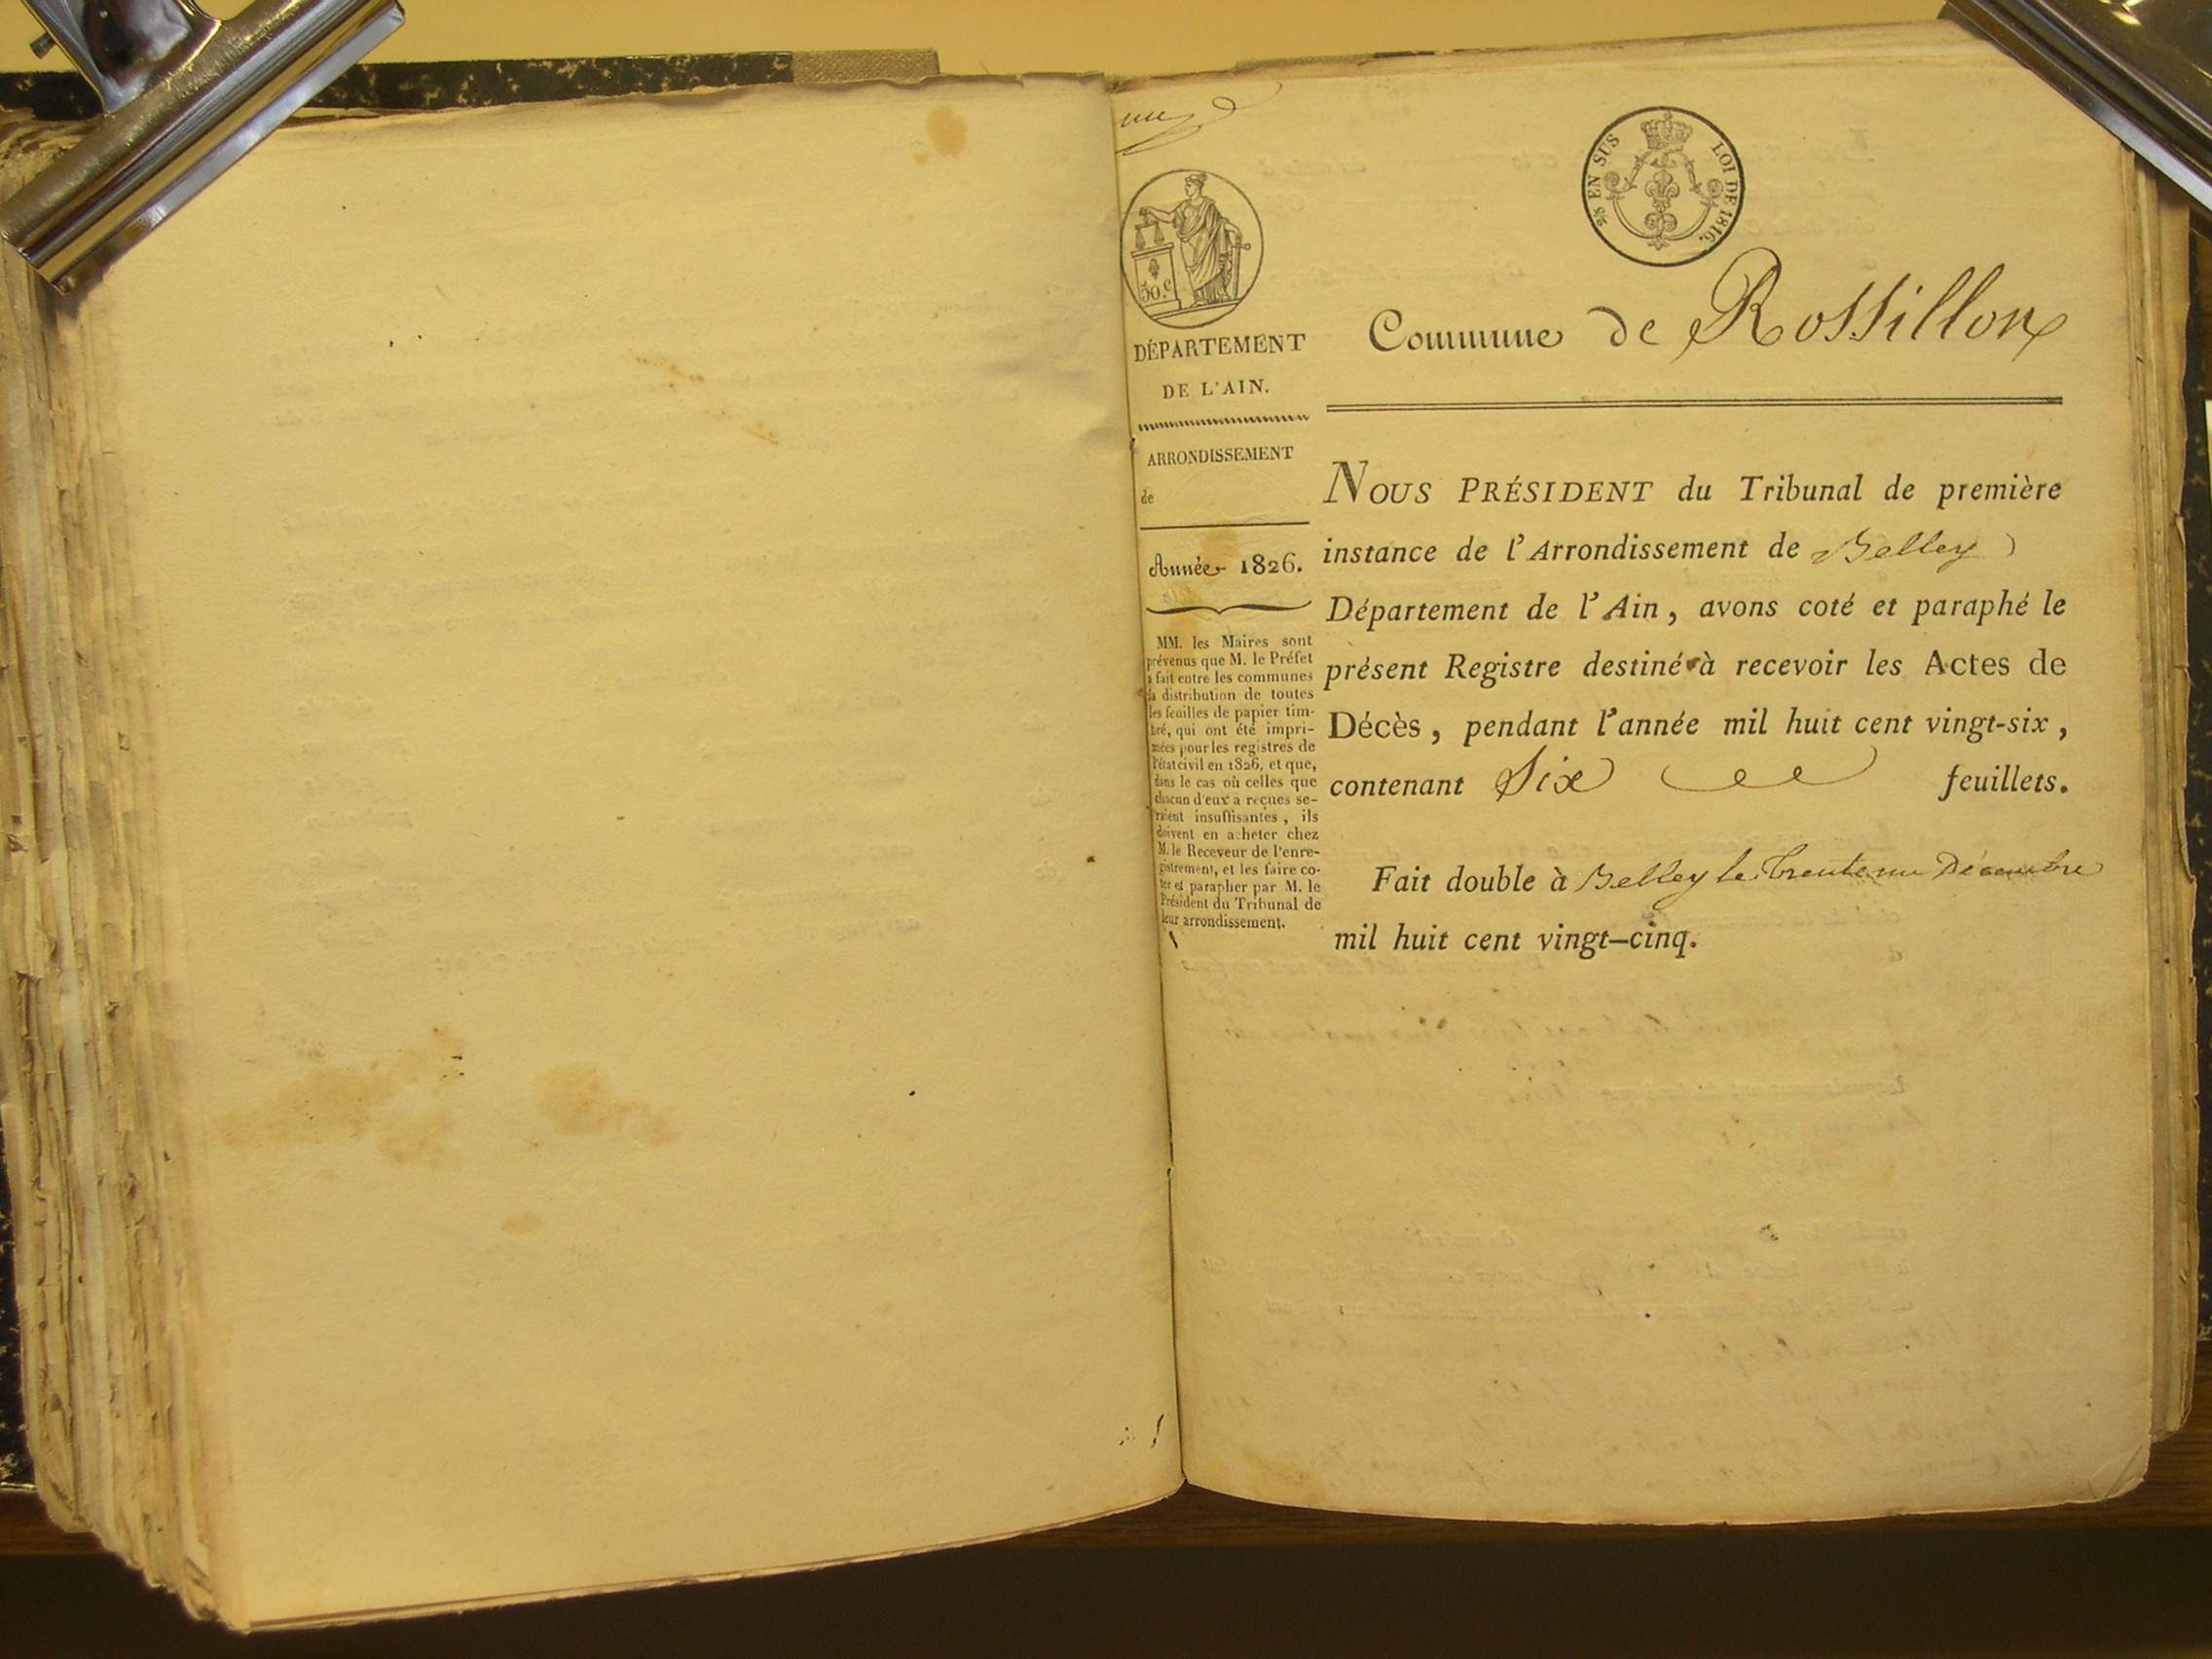 30.c
2/5 EN SUS LOI DE 1816.
DÉPARTEMENT
DE L'AIN.
ARRONDISSEMENT
de
Année 1826.
MM. les Maires sont
prévenus que M. le Préfet
a fait entre les communes
la distribution de toutes
les feuilles de papier tim-
bré, qui ont été impri-
mées pour les registres de
l'état civil en 1826, et que,
dans le cas où celles que
chacun d'eux a reçues se-
raient insuffisantes, ils
doivent en acheter chez
M. le Receveur de l'enre-
gistrement, et les faire co-
ter et parapher par M. le
Président du Tribunal de
leur arrondissement.
Commune de Rossillon
NOUS PRÉSIDENT du Tribunal de première
instance de l'Arrondissement de Belley
Département de l'Ain, avons coté et paraphé le
présent Registre destiné à recevoir les Actes de
Décès, pendant l'année mil huit cent vingt-six,
contenant Six feuillets.
Fait double à Belley le trente un Décembre
mil huit cent vingt-cinq.